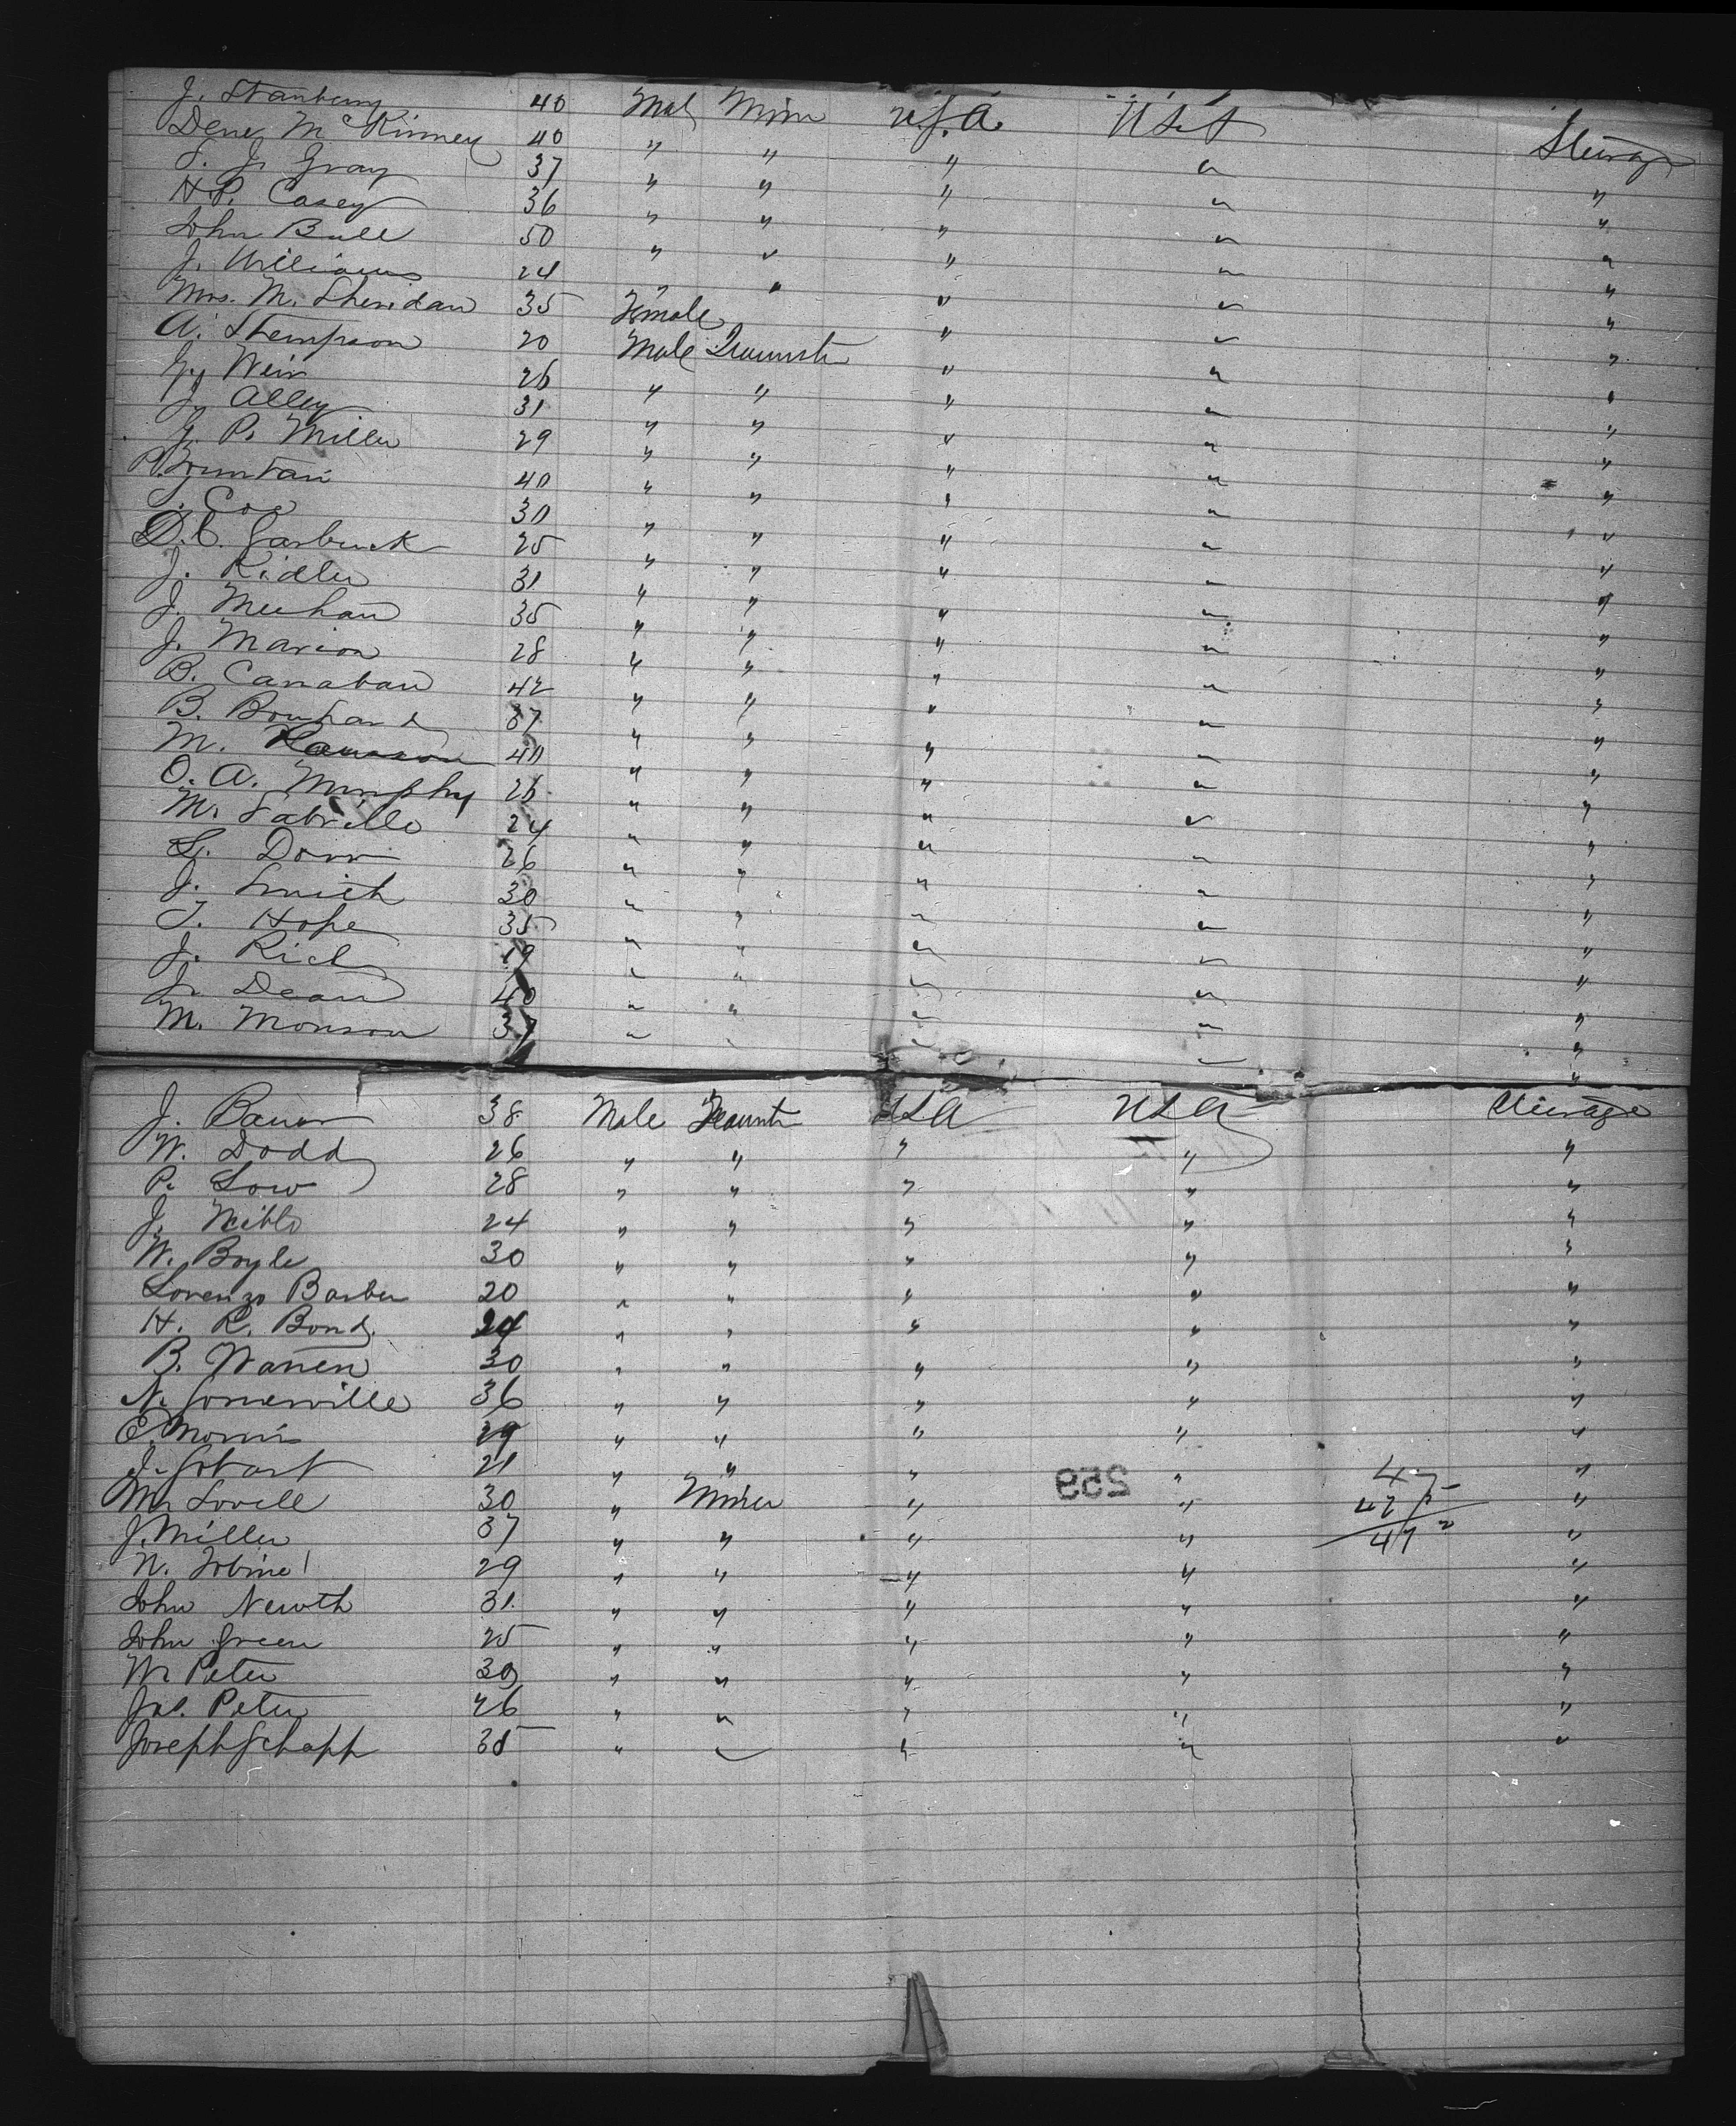 J. Stanberry 40 Mal Minr U.S.A. U.S.A Steirage
Dene McKinney 40 " " " " "
S. J. Gray 37 " " " " "
H.P. Casey 36 " " " " "
John Bull 50 " " " " "
J. Williams 24 " " " " "
Mrs. M. Sheridan 35 Female " " "
A. Stempson 20 Male " " "
Wm Weir 26 " " " " "
J. Alley 31 " " " " "
J. P. Miller 29 " " " " "
P. Fountain 40 " " " " "
J. Coe 30 " " " " "
D.C. Garbuck 25 " " " " "
J. Ridler 31 " " " " "
J. Meehan 35 " " " " "
J. Marion 28 " " " " "
B. Canaban 42 " " " " "
B. 37 " " " " "
M. 40 " " " " "
O. A. Murphy 26 " " " " "
M. Labrello 24 " " " " "
L. Dorr 26 " " " " "
J. Smith 30 " " " " "
T. Hope 35 " " " " "
J. Rich 19 " " " " "
J. Dean 40 " " " " "
M. Monson 37 " " " " "
J. Bauer 38 Male USA USA Steirage
W. Dodd 26 " " " " "
P. Low 28 " " " " "
J. Niblo 24 " " " " "
W. Boyle 30 " " " " "
Lorenzo Barber 20 " " " " "
H. R. Bond. 24 " " " " "
B. Warren 30 " " " " "
N. Somerville 36 " " " " "
C. Morris 29 " " " " "
J. Gobart 21 " " " " "
Wm Lovell 30 " Miner " " "
J. Miller 37 " " " " "
N. 29 " " " " "
John Newth 31 " " " " "
John Green 25 " " " " "
W Peter 30 " " " " "
Jas. Peter 26 " " " " "
Joseph Schapp 35 " " " " "
259
47